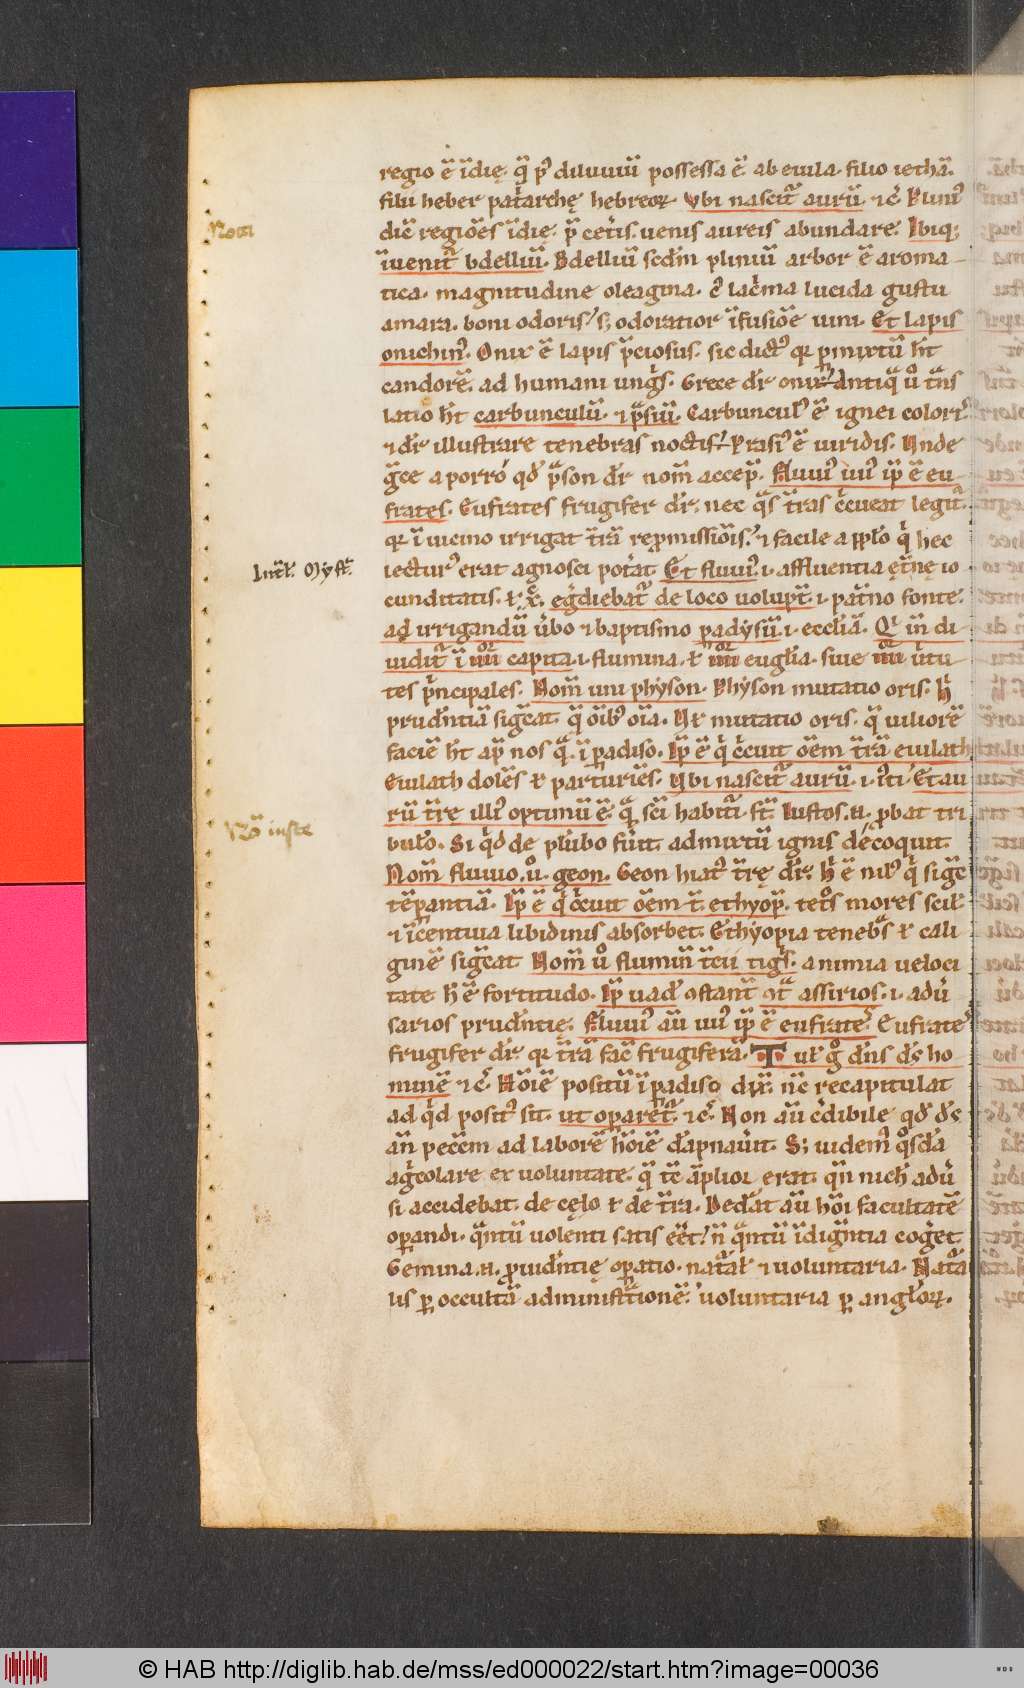 regio ē īdię. q̄ p⁹ diluuiū possessa ē. ab euila filio iethā.
filii heber pat̄archę hebreoꝝ. Vbi nascit᷑ aurū. ⁊c̄ Plini⁹
Nota
dic̄ regiōes īdię. p̄ cet̄is. uenis aureis abundare. Ibiq;
īuenit᷑ bdelliū. Bdelliū scdm̄ pliniū arbor ē aroma
tica. magnitudine oleagina. c⁹ lac̄ma lucida gustu
amara. boni odoris. s; odoratior īfusiōe uini. Et lapis
onichin⁹. Onix ē lapis p̄ciosus. sic dict⁹ qꝛ ꝑmixtū h̄t
candorē. ad humani ungĩs. Grece dr̄ onix. antiq̄ ů t̄ns
latio h̄t carbunculū. ⁊ p̄siū. Carbuncul⁹ ē ignei color⁹
⁊ dr̄ illustrare tenebras noctis. Prasi⁹ ē uiridis. Unde
ḡce a porro qđ p̄son dr̄ nom̄ accep̄. Fluui⁹ iiii⁹ ip̄e ē eu
frates. Eufrates frugifer dr̄. nec q̄s t̄ras c̄cueat legit᷑.
qꝛ ī uicino irrigat t̄rā repmissiōis. ⁊ facile a pp̄lo q̇ hec
Int̄l. Myst̄.
lectur⁹ erat agnosci pot̄at Et fluui⁹. i. affluentia ęt̄nę io
cunditatis. ⁊ x̄. eḡdiebat᷑ de loco uolupt̄. i. pat̄no fonte.
ad irrigandū ůbo ⁊ baptismo padysū. i. eccl̄iā. Qⁱ īn di
uidit᷑ ī iiii capita. i. flumina. ⁊ iiii eugl̄ia. siue iiii ůtu
tes p̄ncipales. Nom̄ uni physon. Physon mutatio oris. h̄
prudn̄tiā sigc̄at. q̄ oīb⁹ oīa. Vt mutatio oris. q̄ uiliorē
faciē h̄t ap̄ nos q̄. ī padiso. Ip̄e ē q̇ c̄cuit oēm t̄rā euilath
Euilath dolēs ⁊ parturiēs. Vbi nascit᷑ aurū. i. iti. Et au
rū t̄rę illi⁹ optimū ē. q̄ sc̄i habit᷑. st̄. Iustos. n. ꝓbat tri
Nō iuste
bul̄o. Si q̇d de plūbo fůit admixtū ignis decoquit.
Nom̄ fluuio. ii. geon. Geon hiat⁹ t̄rę dr̄. h̄ ē nil⁹ q̇ sigc̄
tēꝑantiā. Ip̄e ē q̇ c̄cuit oēm t̄. ethyop̄. tet̄os mores scil̄.
⁊ īcentiua libidinis absorbet. Ethyopia teneb̄s ⁊ cali
ginē sigc̄at Nom̄ ů flumin̄ t̄cii tigs̄. a nimia ueloci
tate h̄ ē fortitudo. Ip̄e uad̄ ꝯstant̄ ꝯt̄ assirios. i. adů
sarios prudn̄tię. Fluui⁹ aū iiii⁹ ip̄e ē eufrate⁹. Eufrate⁹
frugifer dr̄. qꝛ t̄rā fac̄ frugiferā. Tul̄ g̊ dn̄s ds̄ ho
minē ⁊c̄. Hōiē positū ī padiso dix̄. nc̄ recapitulat
ad q̇d posit⁹ sit. ut oparet᷑. ⁊c̄. Non aū c̄dibile qđ ds̄
añ pecc̄m ad laborē hōiē dāpnaůit. S; uidem⁹ q̊sdā
aġcolare ex uoluntate. q̄ tc̄ āplior erat. qn̄ nich̄ adů
si accidebat. de cęlo ⁊ de t̄ra. Ded̄at aū hōi facultatē
oꝑandi. q̄ntū uolenti satis eēt. n̄ q̄ntū īdiḡntia coḡet.
Gemina. n. ꝓuidn̄tię oꝑatio. nat̄al̄ ⁊ uoluntaria. Nat̄a
lis ꝑ occultā administ̄tionē. uoluntaria ꝑ angl̄oꝝ.
© HAB http://diglib.hab.de/mss/ed000022/start.htm?image=00036